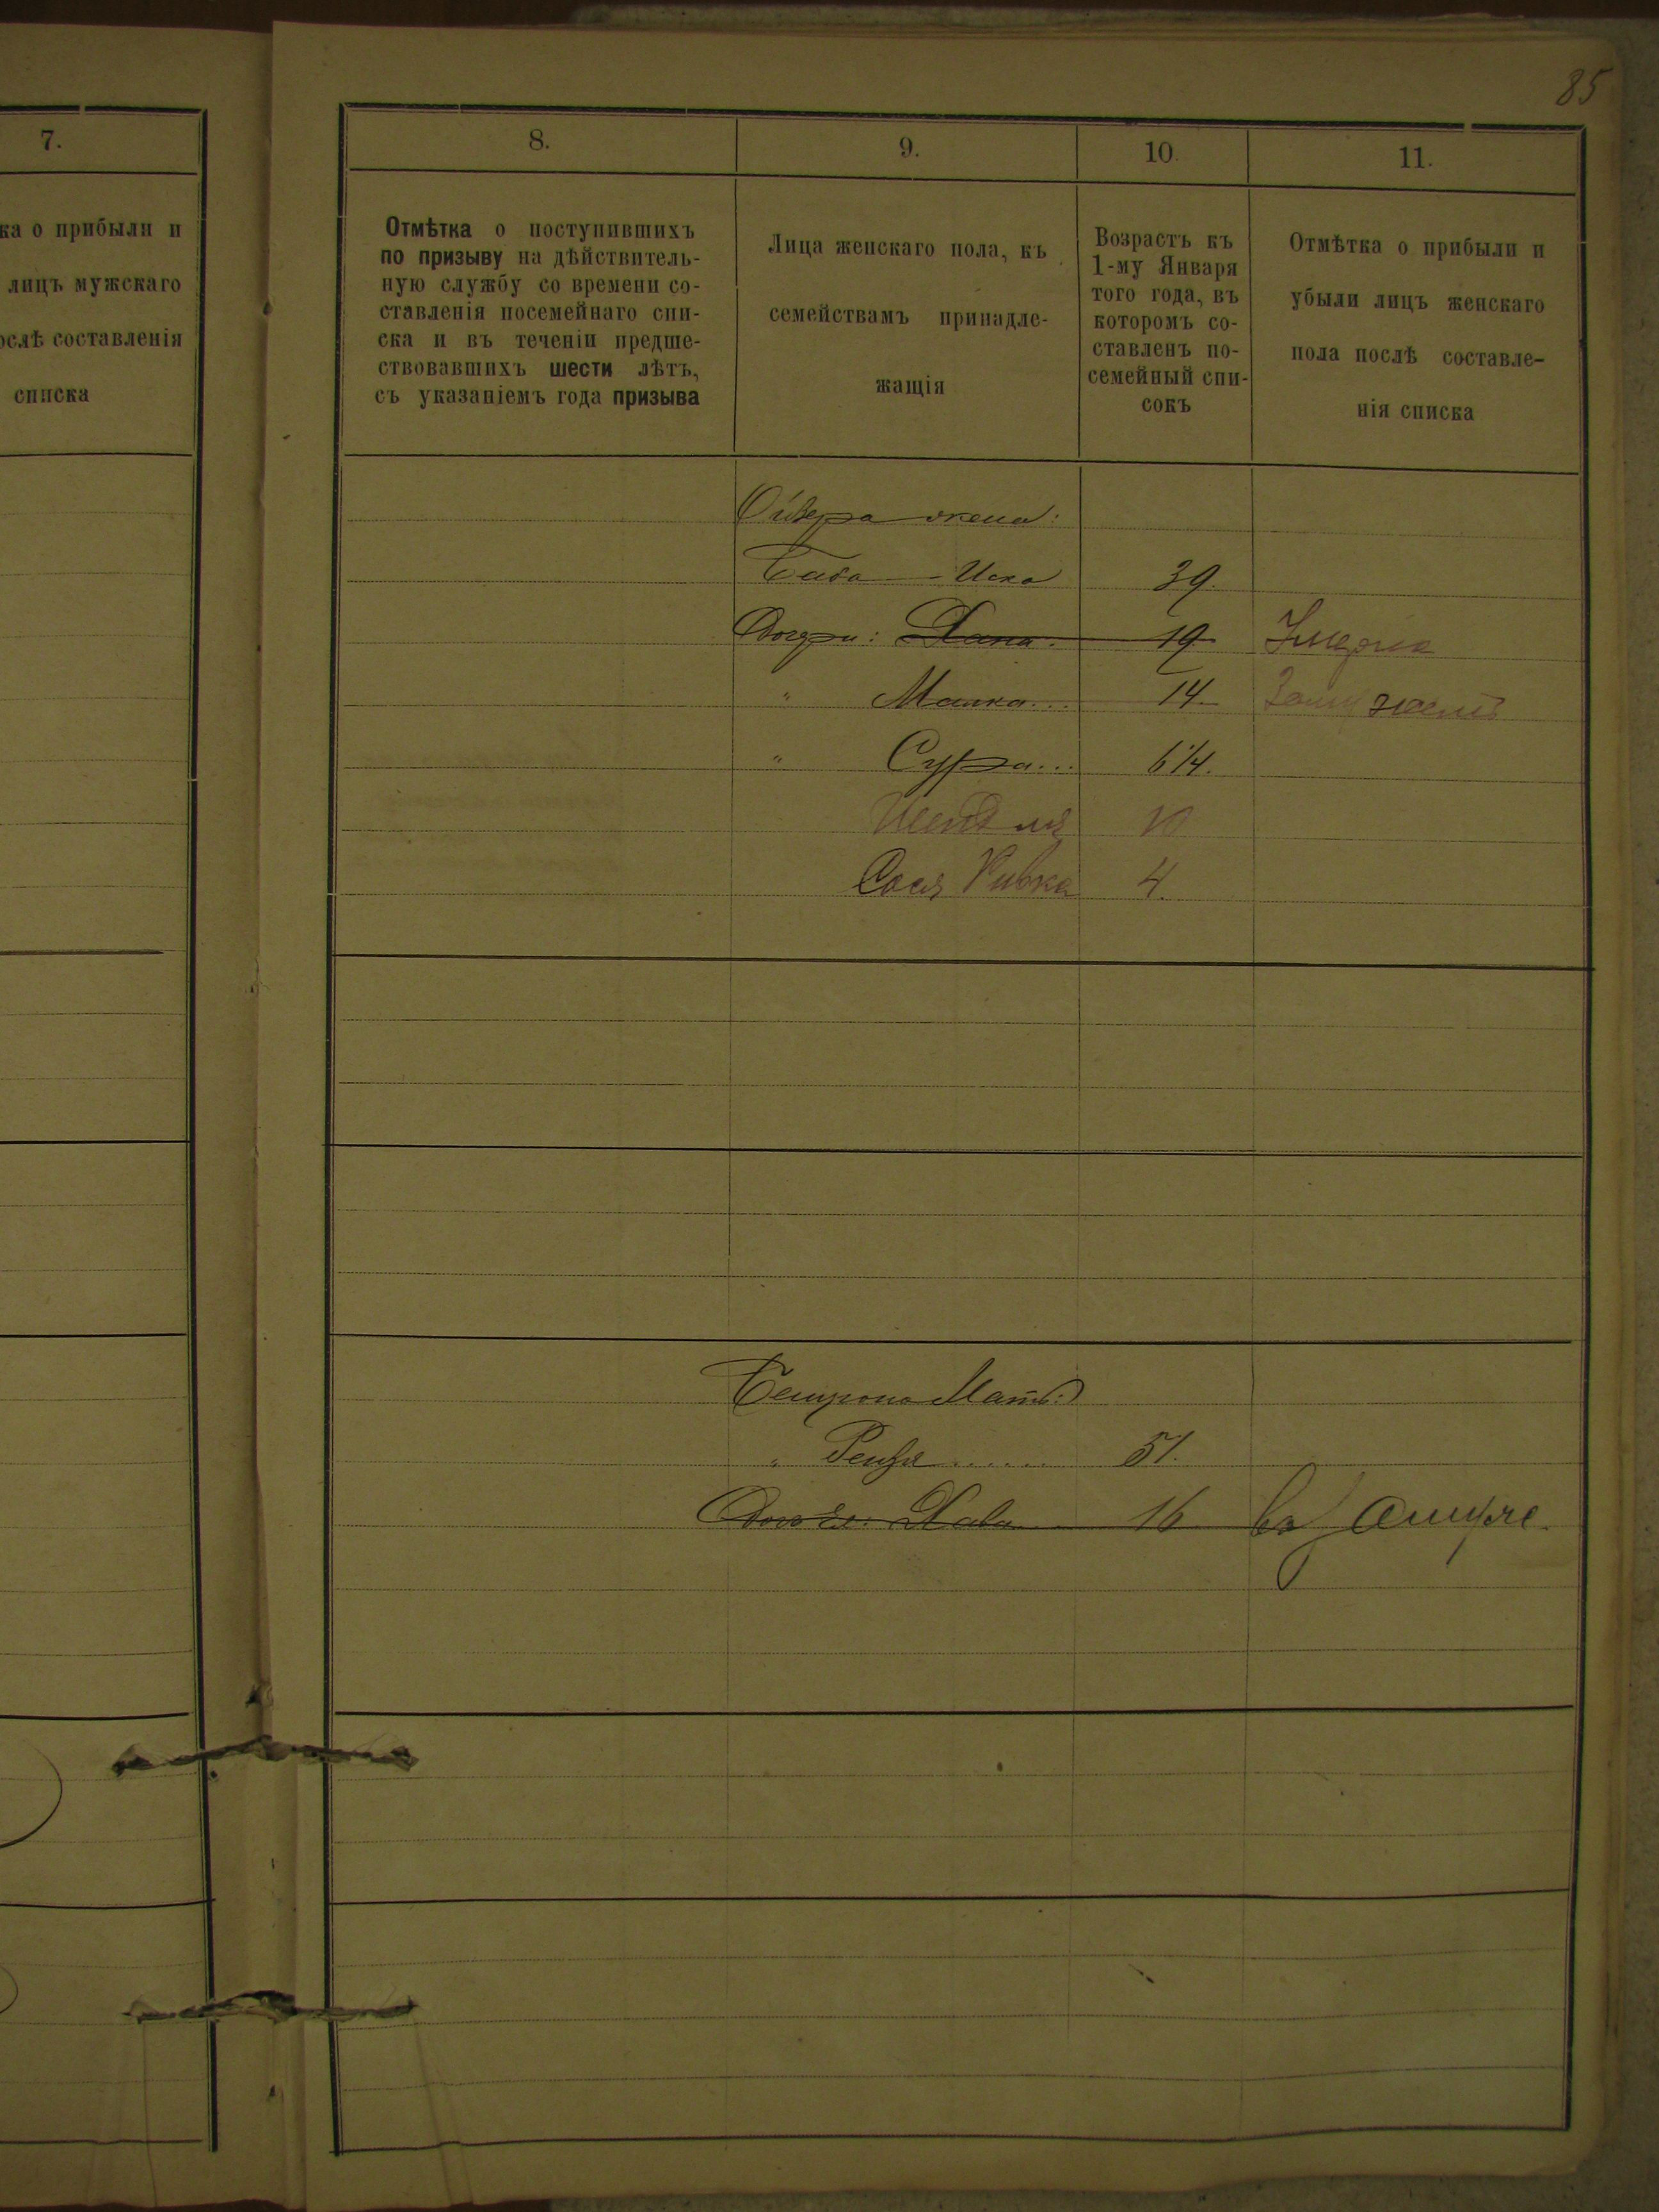 85
7.
ка о прибыли и
лицъ мужскаго
ослѣ составленія
списка
8.
Отмѣтка о поступившихъ
по призыву на дѣйствитель-
ную службу со времени со-
ставленія посемейнаго спи-
ска и въ теченіи предше-
ствовавшихъ шести лѣтъ,
съ указаніемъ года призыва
9.
Лица женскаго пола, къ
семействамъ принадле-
жащія
10.
Возрастъ къ
1-му Января
того года, въ
которомъ со-
ставленъ по-
семейный спи-
сокъ
11.
Отмѣтка о прибыли и
убыли лицъ женскаго
пола послѣ составле-
нія списка
жена:
39.
Дочери: Хана. 19 Умерла
" Малка... 14. Замужемъ
" Сура... 6 1/4.
Шендля 10
Сося Ривка 4.
Мать:
" 51.
Дочь: Хава 16 въ замуже.